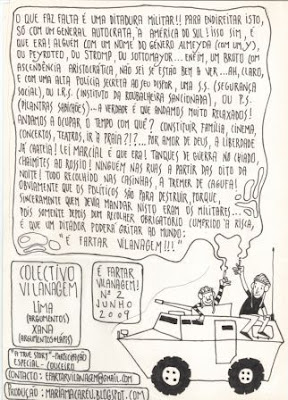 O QUE FAZ FALTA É UMA DITADURA MILITAR!! PARA ENDIREITAR ISTO,
SÓ COM UM GENERAL AUTOCRATA, 'À AMÉRICA DO SUL! ISSO SIM, É
QUE ERA! ALGUÉM COM UM NOME DO GÉNERO ALMEYDA (COM UM Y),
OU PEYROTEO, OU STROMP, OU SOTTOMAYOR... ENFIM, UM BRUTO COM
ASCENDÊNCIA ARISTOCRÁTICA, NÃO SEI SE ESTÃO BEM A VER... AH, CLARO,
E COM UMA ALTA POLÍCIA SECRETA AO SEU DISPOR, UMA S.S. (SEGURANÇA
SOCIAL), OU I.R.S. (INSTITUTO DA ROUBALHEIRA SANCIONADA), OU P.S.
(PILANTRAS SABICHÕES)... A VERDADE É QUE ANDAMOS MUITO RELAXADOS!
ANDAMOS A OCUPAR O TEMPO COM QUÊ? CONSTITUIR FAMÍLIA, CINEMA,
CONCERTOS, TEATROS, IR À PRAIA?!?... POR AMOR DE DEUS, A LIBERDADE
JÁ CHATEIA! LEI MARCIAL É QUE ERA! TANQUES DE GUERRA NO CHIADO,
CHAIMITES AO ROSSIO! NINGUÉM NAS RUAS A PARTIR DAS OITO DA
NOITE! TODO RECOLHIDO NAS CASINHAS, A TREMER DE CAGUFA!
OBVIAMENTE QUE OS POLÍTICOS SÃO PARA DESTRUIR, PORQUE,
SINCERAMENTE QUEM DEVIA MANDAR NISTO ERAM OS MILITARES...
POIS SOMENTE DEPOIS DUM RECOLHER OBRIGATÓRIO CUMPRIDO À RISCA,
É QUE UM DITADOR PODERÁ GRITAR AO MUNDO:
"É FARTAR VILANAGEM!!!"
COLECTIVO
VILANAGEM
LIMA
(ARGUMENTOS)
XANA
(ARGUMENTOS+LÁPIS)
"A TRUE STORY" - PARTICIPAÇÃO
ESPECIAL -
CONTACTO: EFARTARVILANAGEM@GMAIL.COM
PRODUÇÃO: MARIAMACAREU.BLOGSPOT.COM
É FARTAR
VILANAGEM!
Nº 2
JUNHO
2009